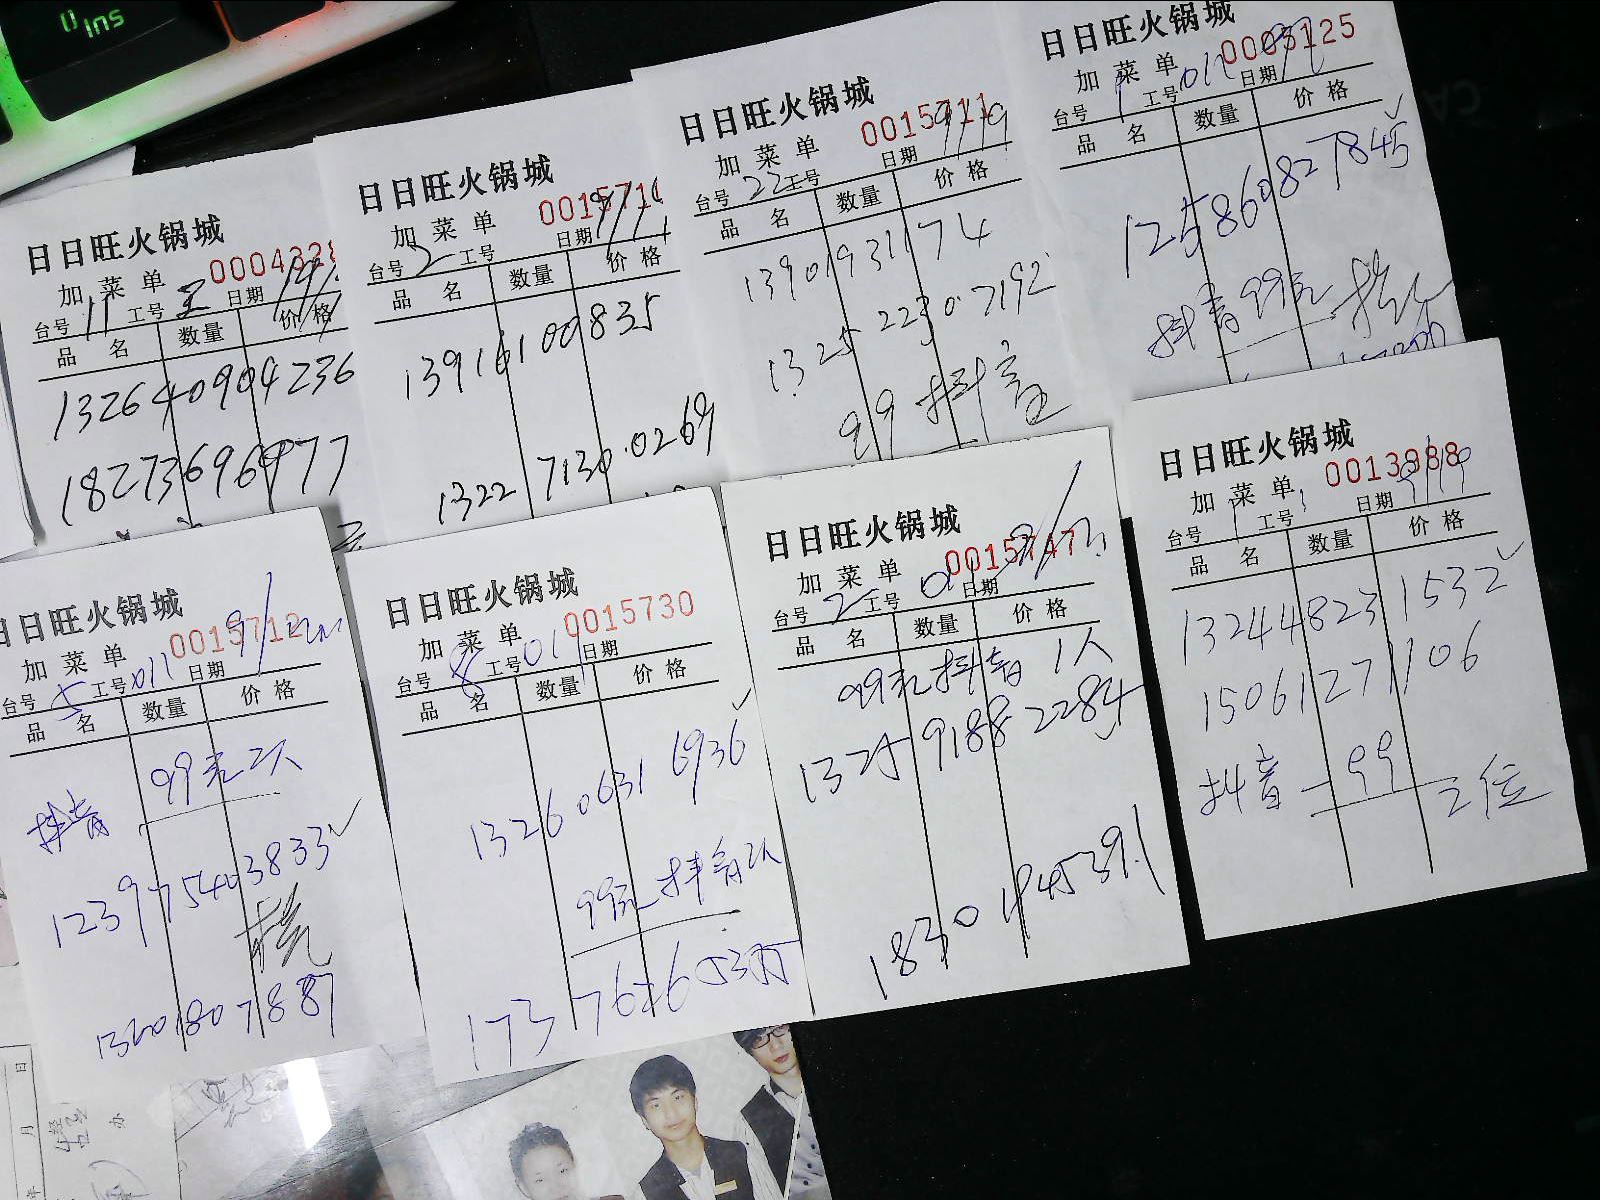 日日旺火锅城
加菜单 0004328
台号 11 工号 王 日期
品名 数量 价格
132640904236
18273696977
日日旺火锅城
加菜单
台号 2 工号 日期
品名 数量 价格
13916100835
1322 7130 0269
日日旺火锅城
加菜单 0015711
台号 22 工号 日期 9/19
品名 数量 价格
13901931174
1325 2230 7192
99 抖音
日日旺火锅城
加菜单 0005125
台号 1 工号 011 日期
品名 数量 价格
125860827845
抖音99元
日日旺火锅城
加菜单 0015712
台号 5 工号 011 日期
品名 数量 价格
抖音 99元2人
123975403833
13201807887
日日旺火锅城
加菜单 0015730
台号 8 工号 019 日期
品名 数量 价格
1326 0631 6936
99元抖音2人
日日旺火锅城
加菜单 0015747
台号 2 工号 日期
品名 数量 价格
99元抖音1人
1325 9188 2284
日日旺火锅城
加菜单 0013988
台号 1 工号 日期 9/19
品名 数量 价格
13244823 1532
15061271106
抖音-99 二位
Ins